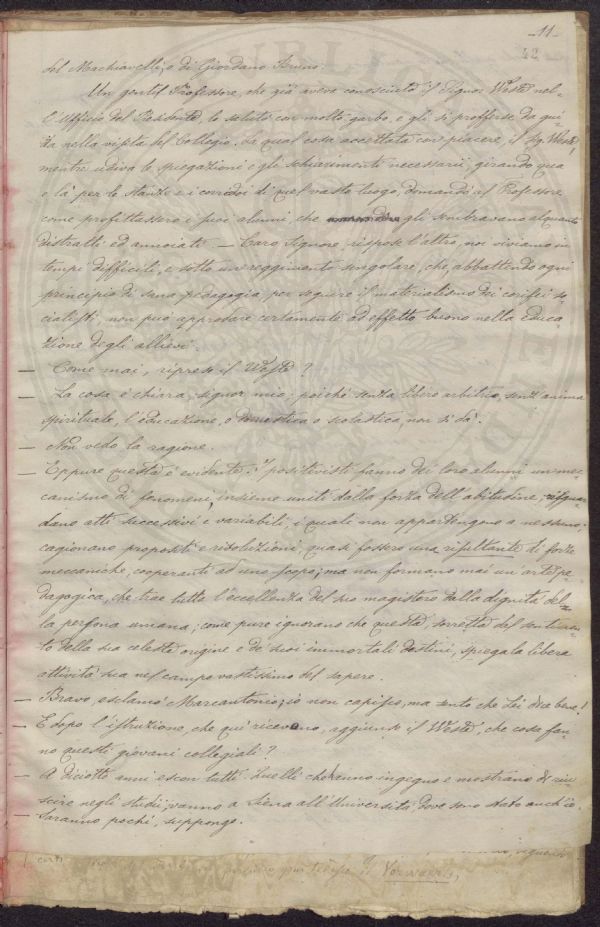 -11-
42
del Machiavelli, e di Giordano Bruno.
Un gentil Professore, che già aveva conosciuto il Signor West nel-
l'Ufficio del Presidente, lo salutò con molto garbo, e gli si profferse da gui-
da nella visita del Collegio. La qual cosa accettata con piacere, il Sig. West
mentre udiva le spiegazioni e gli schiarimenti necessarii, girando qua
e là per le stanze e i corridoi di quel vasto luogo, domandò al Professore
come profittassero i suoi alunni, che gli sembravano alquanto
distratti ed annoiati. — Caro Signore, rispose l'altro, noi viviamo in
tempi difficili, e sotto un reggimento singolare, che, abbattendo ogni
principio di sana pedagogia, per seguire il materialismo dei corifei so-
cialisti, non può approdare certamente ad effetto buono nella educa-
zione degli allievi.
— Come mai, riprese il West?
— La cosa è chiara, signor mio: poichè senza libero arbitrio, senz'anima
spirituale, l'educazione, o domestica o scolastica, non si dà.
— Non vedo la ragione.
— Eppure questa è evidente. I positivisti fanno dei loro alunni un mec-
canismo di fenomeni, insieme uniti dalla forza dell'abitudine; riguar-
dano atti successivi e variabili, i quali non appartengono a nessuno;
cagionano propositi e risoluzioni, quasi fossero una risultante di forze
meccaniche, cooperanti ad uno scopo; ma non formano mai un'arte pe-
dagogica, che trae tutta l'eccellenza del suo magistero dalla dignità del-
la persona umana; come pure ignorano che questa, sorretta dal sentimen-
to della sua celeste origine e de' suoi immortali destini, spiega la libera
attività sua nel campo vastissimo del sapere.
— Bravo, esclamò Marcantonio; io non capisco, ma sento che Lei dice bene!
— E dopo l'istruzione, che qui ricevono, aggiunse il West, che cosa fan-
no questi giovani collegiali?
— A diciotto anni escon tutti. Quelli che hanno ingegno e mostrano di riu-
scire negli studii, vanno a Siena all'Università dove sono stato anch'io.
— Saranno pochi, suppongo.
Vorwaerts,